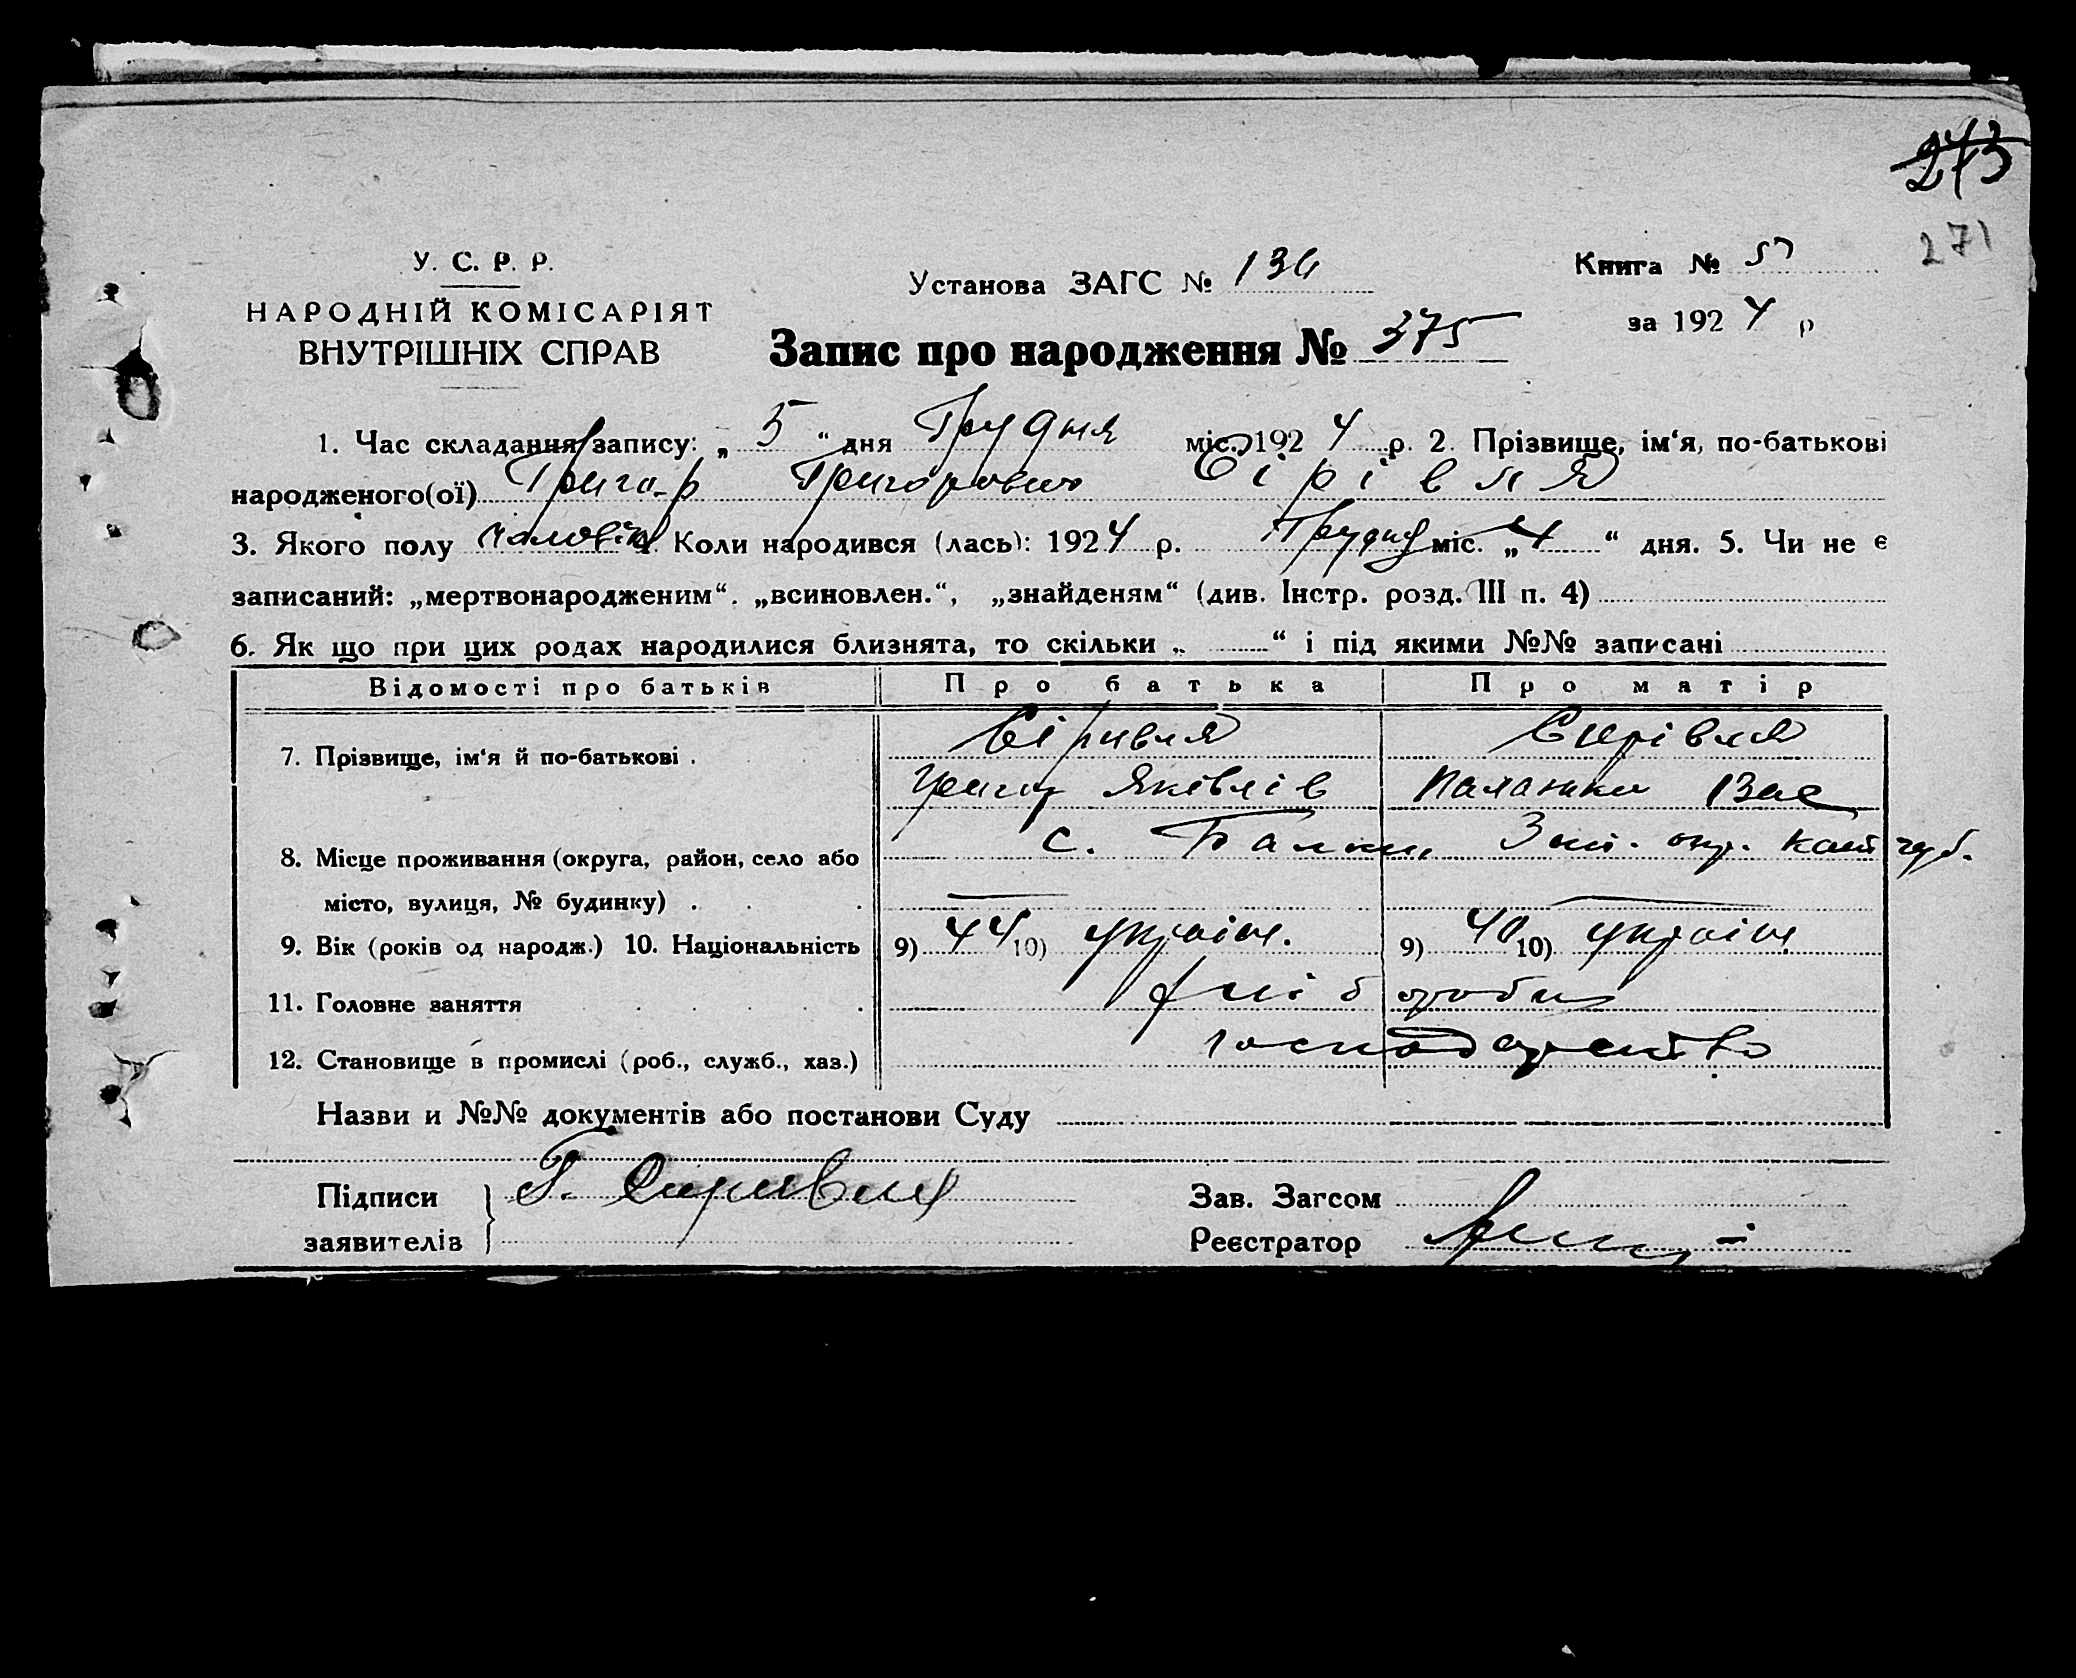 273
271
У. С. Р. Р.
НАРОДНІЙ КОМІСАРІЯТ
ВНУТРІШНІХ СПРАВ
Установа ЗАГС №
Книга № 5
за 1924 р
Запис про народження № 375
1. Час складання запису: „ 5 “ дня Грудня міс. 1924 р. 2. Прізвище, ім‘я, по-батькові
народженого(ої) Григор Григорович Сірівля
3. Якого полу чоловіч 4. Коли народився (лась): 1924 р. Грудня міс. „ 4 “ дня. 5. Чи не є
записаний: „мертвонародженим“. „всиновлен.“, „знайденям“ (див. Інстр. розд. III п. 4)
6. Як що при цих родах народилися близнята, то скільки „ “ і під якими №№ записані
Відомості про батьків Про батька Про матір
7. Прізвище, ім‘я й по-батькові . Сіривля Сирівля
Григор Яківлів Палажка Вас
8. Місце проживання (округа, район, село або с. Балки, Зап. окр. Кат губ.
місто, вулиця, № будинку) . . .
9. Вік (років од народж.) 10. Національність 9) 44 10) україн. 9) 40 10) україн
11. Головне заняття . . . . . хліборобил
12. Становище в промислі (роб., служб., хаз.) господарство
Назви и №№ документів або постанови Суду
Підписи Г. Сиривля Зав. Загсом
заявителів Реєстратор